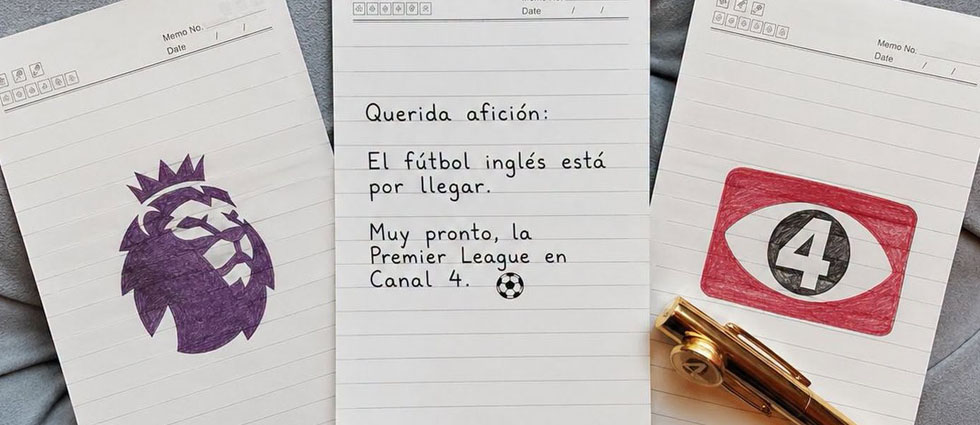 Memo No.
Date / /
Date / /
Querida afición:
El fútbol inglés está
por llegar.
Muy pronto, la
Premier League en
Canal 4.
Memo No.
Date / /
4